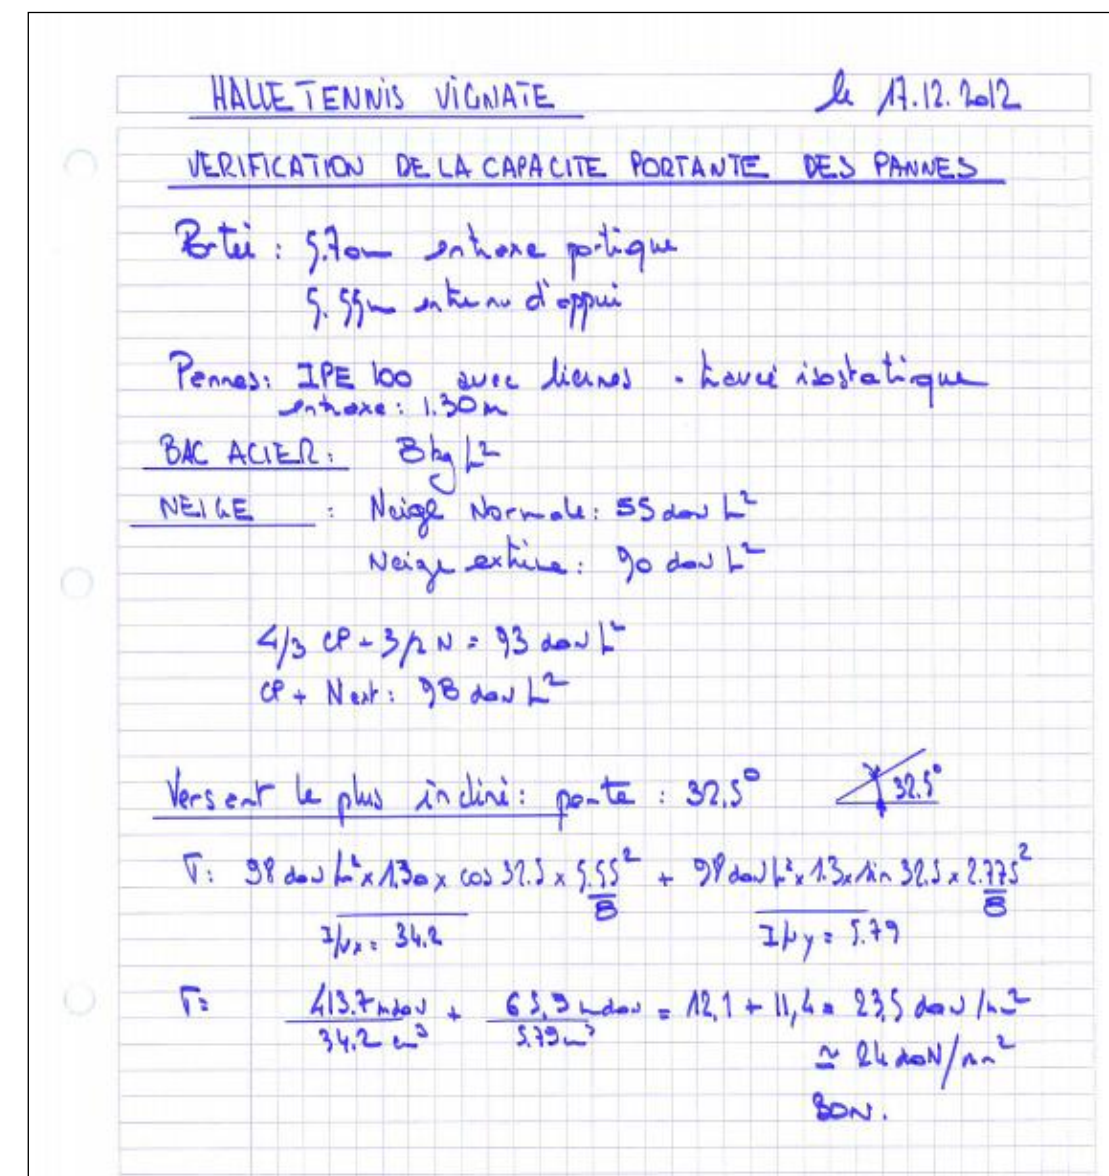 HALLE TENNIS VIGNATE le 17.12.2012
VERIFICATION DE LA CAPACITE PORTANTE DES PANNES
5.70m entraxe portique
5.55m d'appui
Pannes: IPE 100 avec liernes - travée isostatique
entraxe: 1.30m
BAC ACIER: 8 kg/m²
NEIGE : Neige Normale: 55 daN/m²
Neige extrême: 90 daN/m²
4/3 CP + 3/2 N = 93 daN/m²
CP + Next: 98 daN/m²
Versant le plus incliné: pente : 32.5° 32.5°
σ: 98 daN/m² x 1.30 x cos 32.5 x 5.55² + 98 daN/m² x 1.3 x sin 32.5 x 2.775²
8 8
I/vx = 34.2 I/vy = 5.79
σ= 413.7 mdaN + 65,9 mdaN = 12,1 + 11,4 = 23,5 daN/mm²
34.2 cm³ 5.79 cm³
≃ 24 daN/mm²
BON.